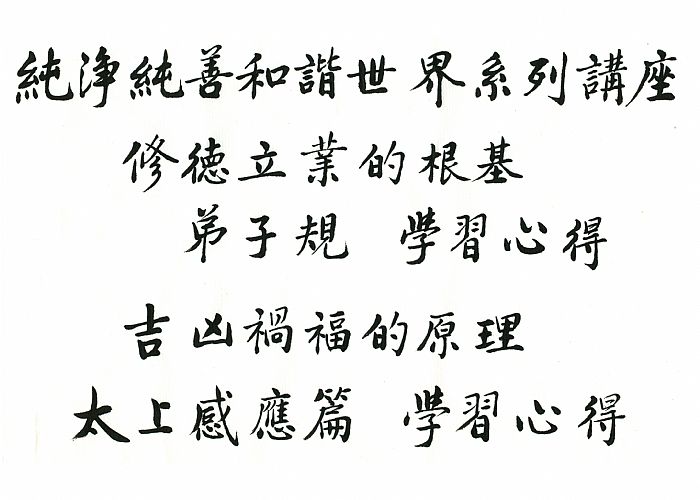 純淨純善和諧世界系列講座
修德立業的根基
弟子規 學習心得
吉凶禍福的原理
太上感應篇 學習心得